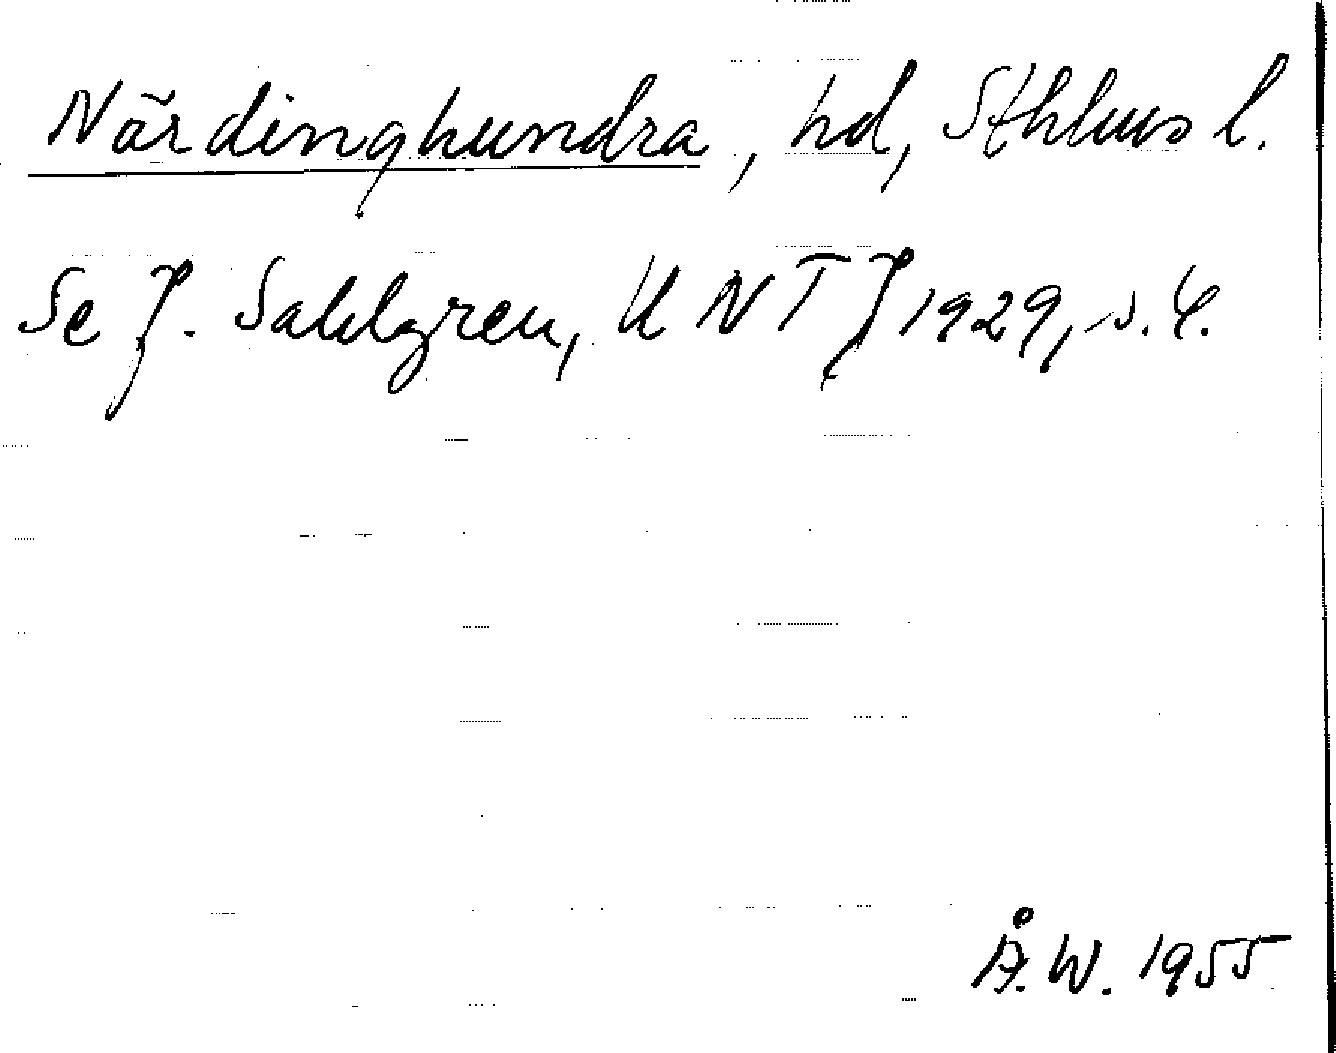 Närdinghundra, hd, Sthlms l.
Se J. Sahlgren, UNTJ 1929, s. 4.
Å. W. 1955